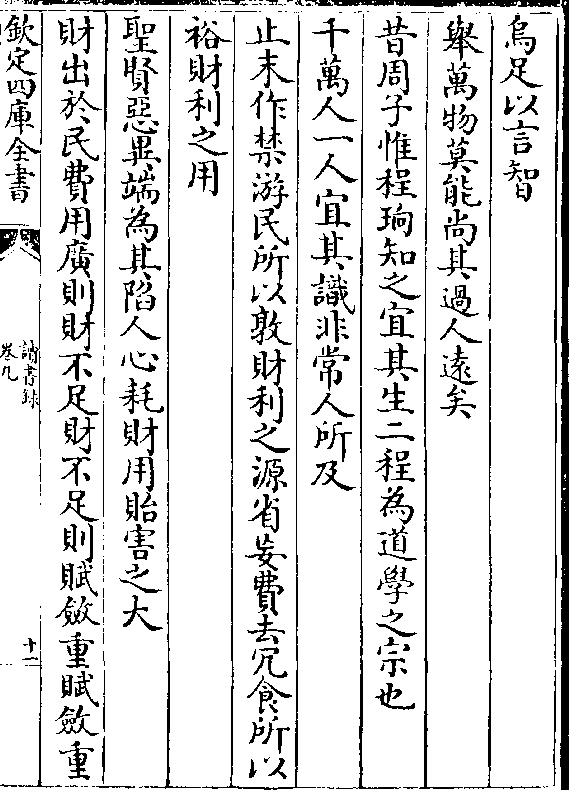 烏足以言智
舉萬物莫能尚其過人遠矣
昔周子惟程珦知之宜其生二程為道學之宗也
千萬人一人宜其識非常人所及
止末作禁游民所以敦財利之源省妄費去冗食所以
裕財利之用
聖賢惡異端為其陷人心耗財用貽害之大
財出於民費用廣則財不足財不足則賦斂重賦斂重
欽定四庫全書
讀書録
卷九
十一